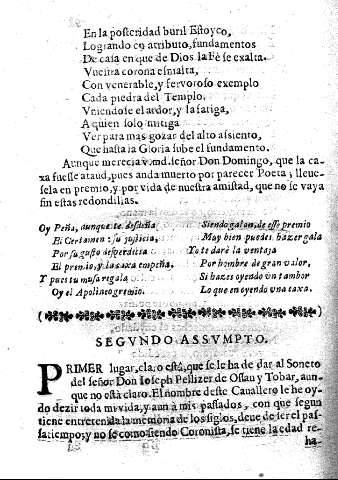 En la posteridad buril Estoyco,
Logrando en atributo, fundamentos
De casa en que de Dios la Fè se exalta.
Vuestra corona esmalta,
Con venerable, y fervoroso exemplo
Cada piedra del Templo.
Vniendose el ardor, y la fatiga,
A quien solo mitiga
Ver para mas gozar del alto assiento,
Que hasta la Gloria sube el fundamento.
Aunque merecia v.md. señor Don Domingo, que la ca-
xa fuesse ataud, pues anda muerto por parecer Poeta; lleue-
sela en premio, y por vida de nuestra amistad, que no se vaya
sin estas redondillas.
Oy Peña, aunque te desdeña
El Certamen: su justicia,
Por su gusto desperdicia
El premio, y la caxa empeña,
Y pues tu musa regala
Oy el Apolineo gremio.
Siendo galan, de esse premio
Muy bien puedes hazer gala
Yo te darè la ventaja
Por hombre de gran valor,
Si hazes oyendo vn tambor
Lo que en oyendo vna caxa.
SEGVNDO ASSVMPTO.
PRIMER lugar, claro està, que se le ha de dar al Soneto
del señor Don Ioseph Pellizer de Ossau y Tobar, aun-
que no està claro. El nombre deste Cavallero le he oy-
do dezir toda mi vida, y aun à mis passados, con que segun
tiene entretenida la memoria de los siglos, deue de ser el pas-
satiempo; y no se como siendo Coronista, se tiene la edad re-
ha-